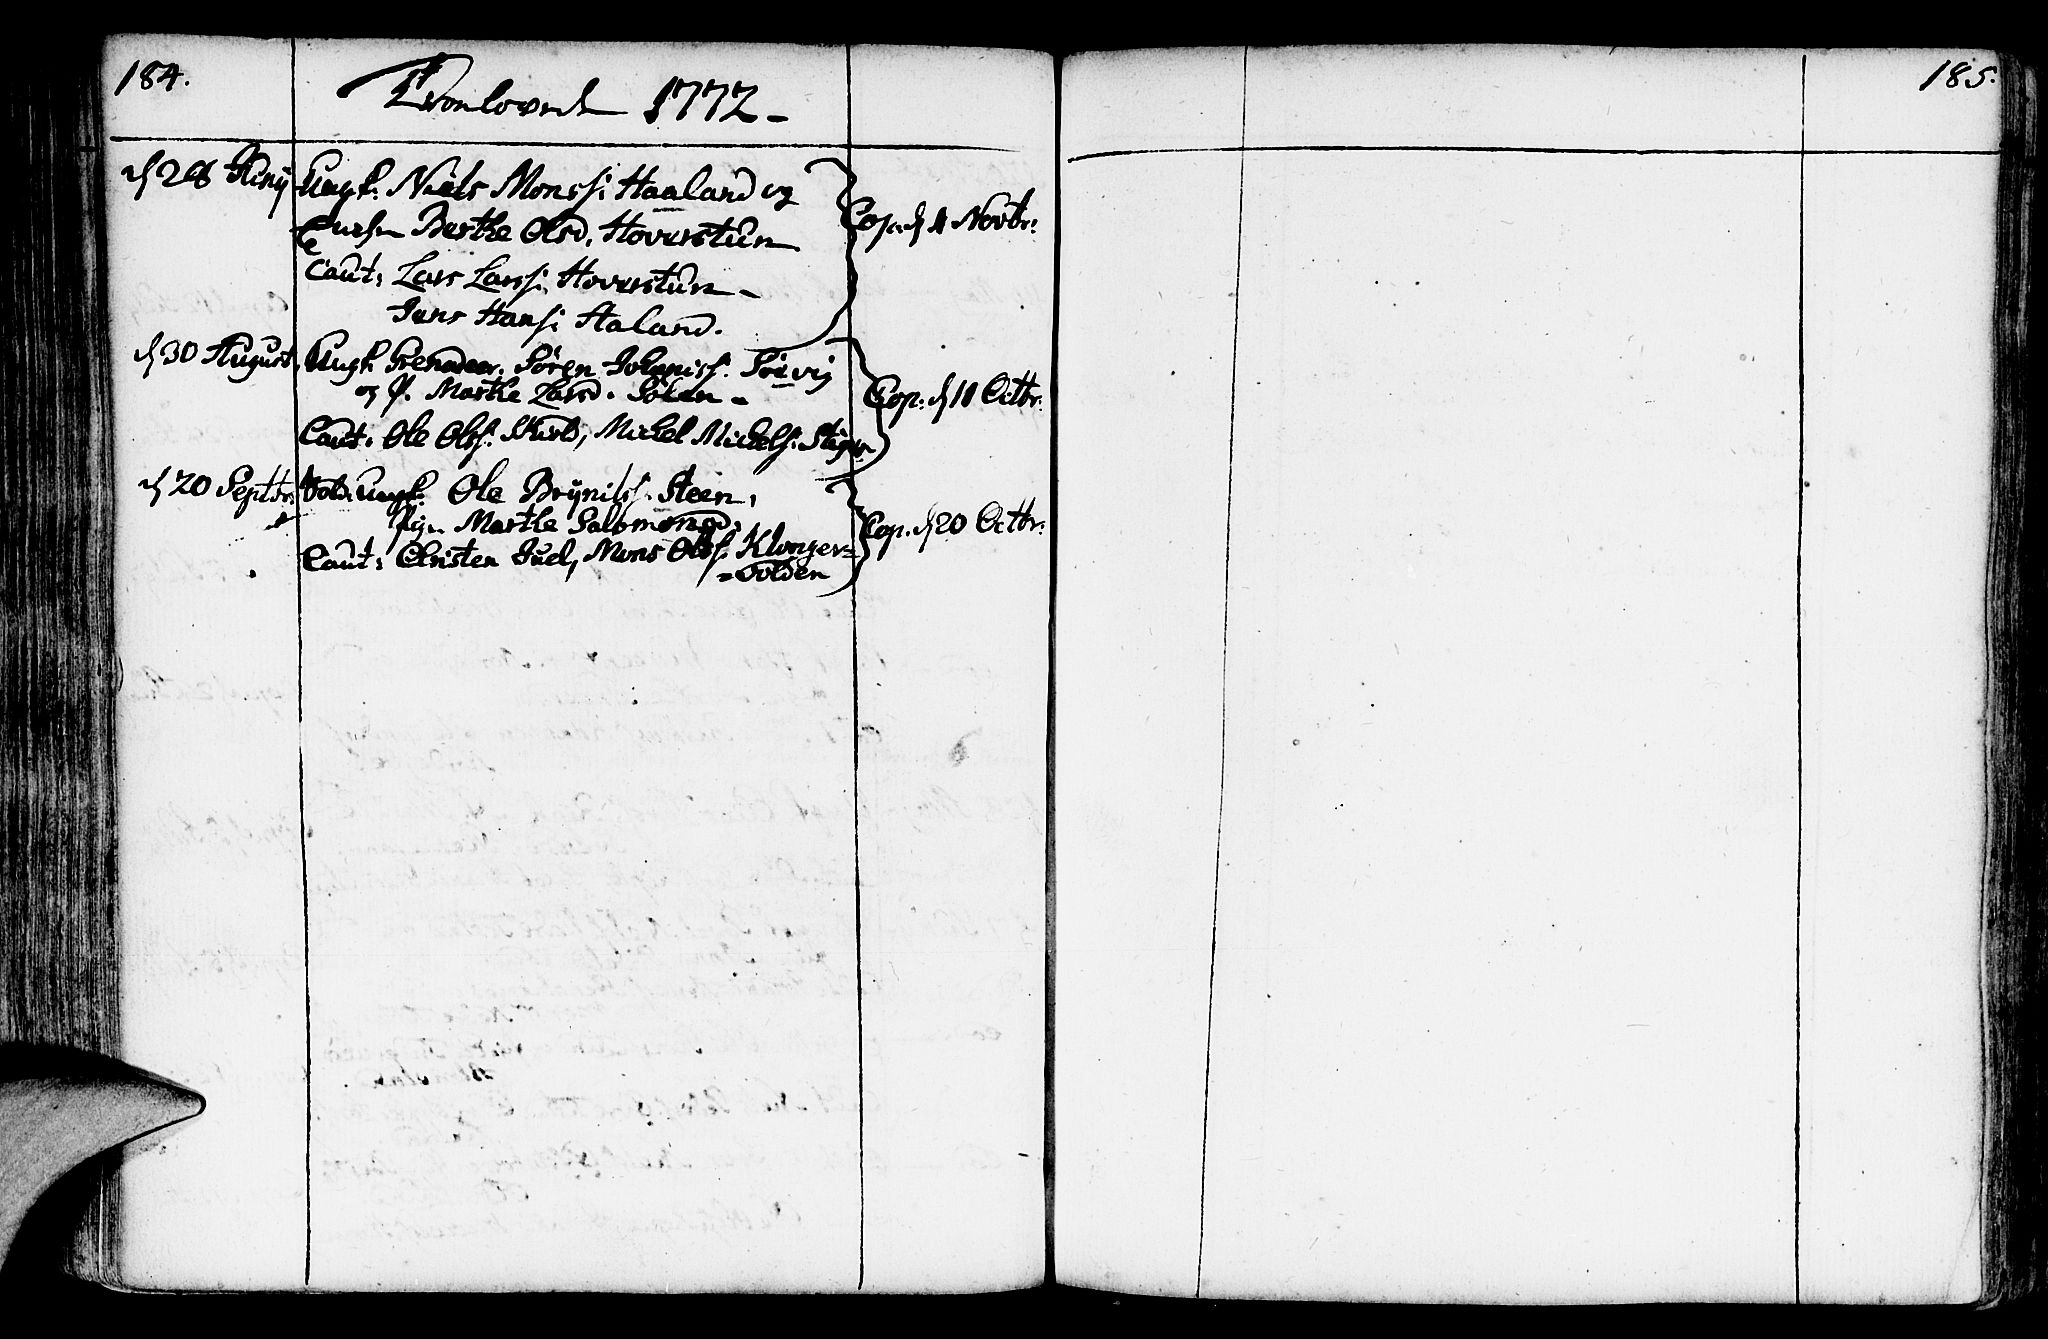 184.
Troelovede 1772 -
d 28 Junij Ungk. Niels Monss: Haaland og
Enken Berthe Olsd. Hoverstun
Caut: Lars Larss: Hoverstun -
Jens Hanss: Haland.
Cop. d 4 Novbr:
d 30 August. Ungk. Grenadeer. Sören Johaniss. Sörvig
og P. Marthe Larsd. Solen -
Caut. Ole Olss. Skield, Michel Michels:
Cop: d 11 Octbr:
d 20 Septbr. Sold. Ungk. Ole Brynilss. Steen,
Pig. Marthe Salomonsd.
Caut: Christen Juel, Mons Olss. Klonger=
=volden
Cop. d 20 Octbr:
185.